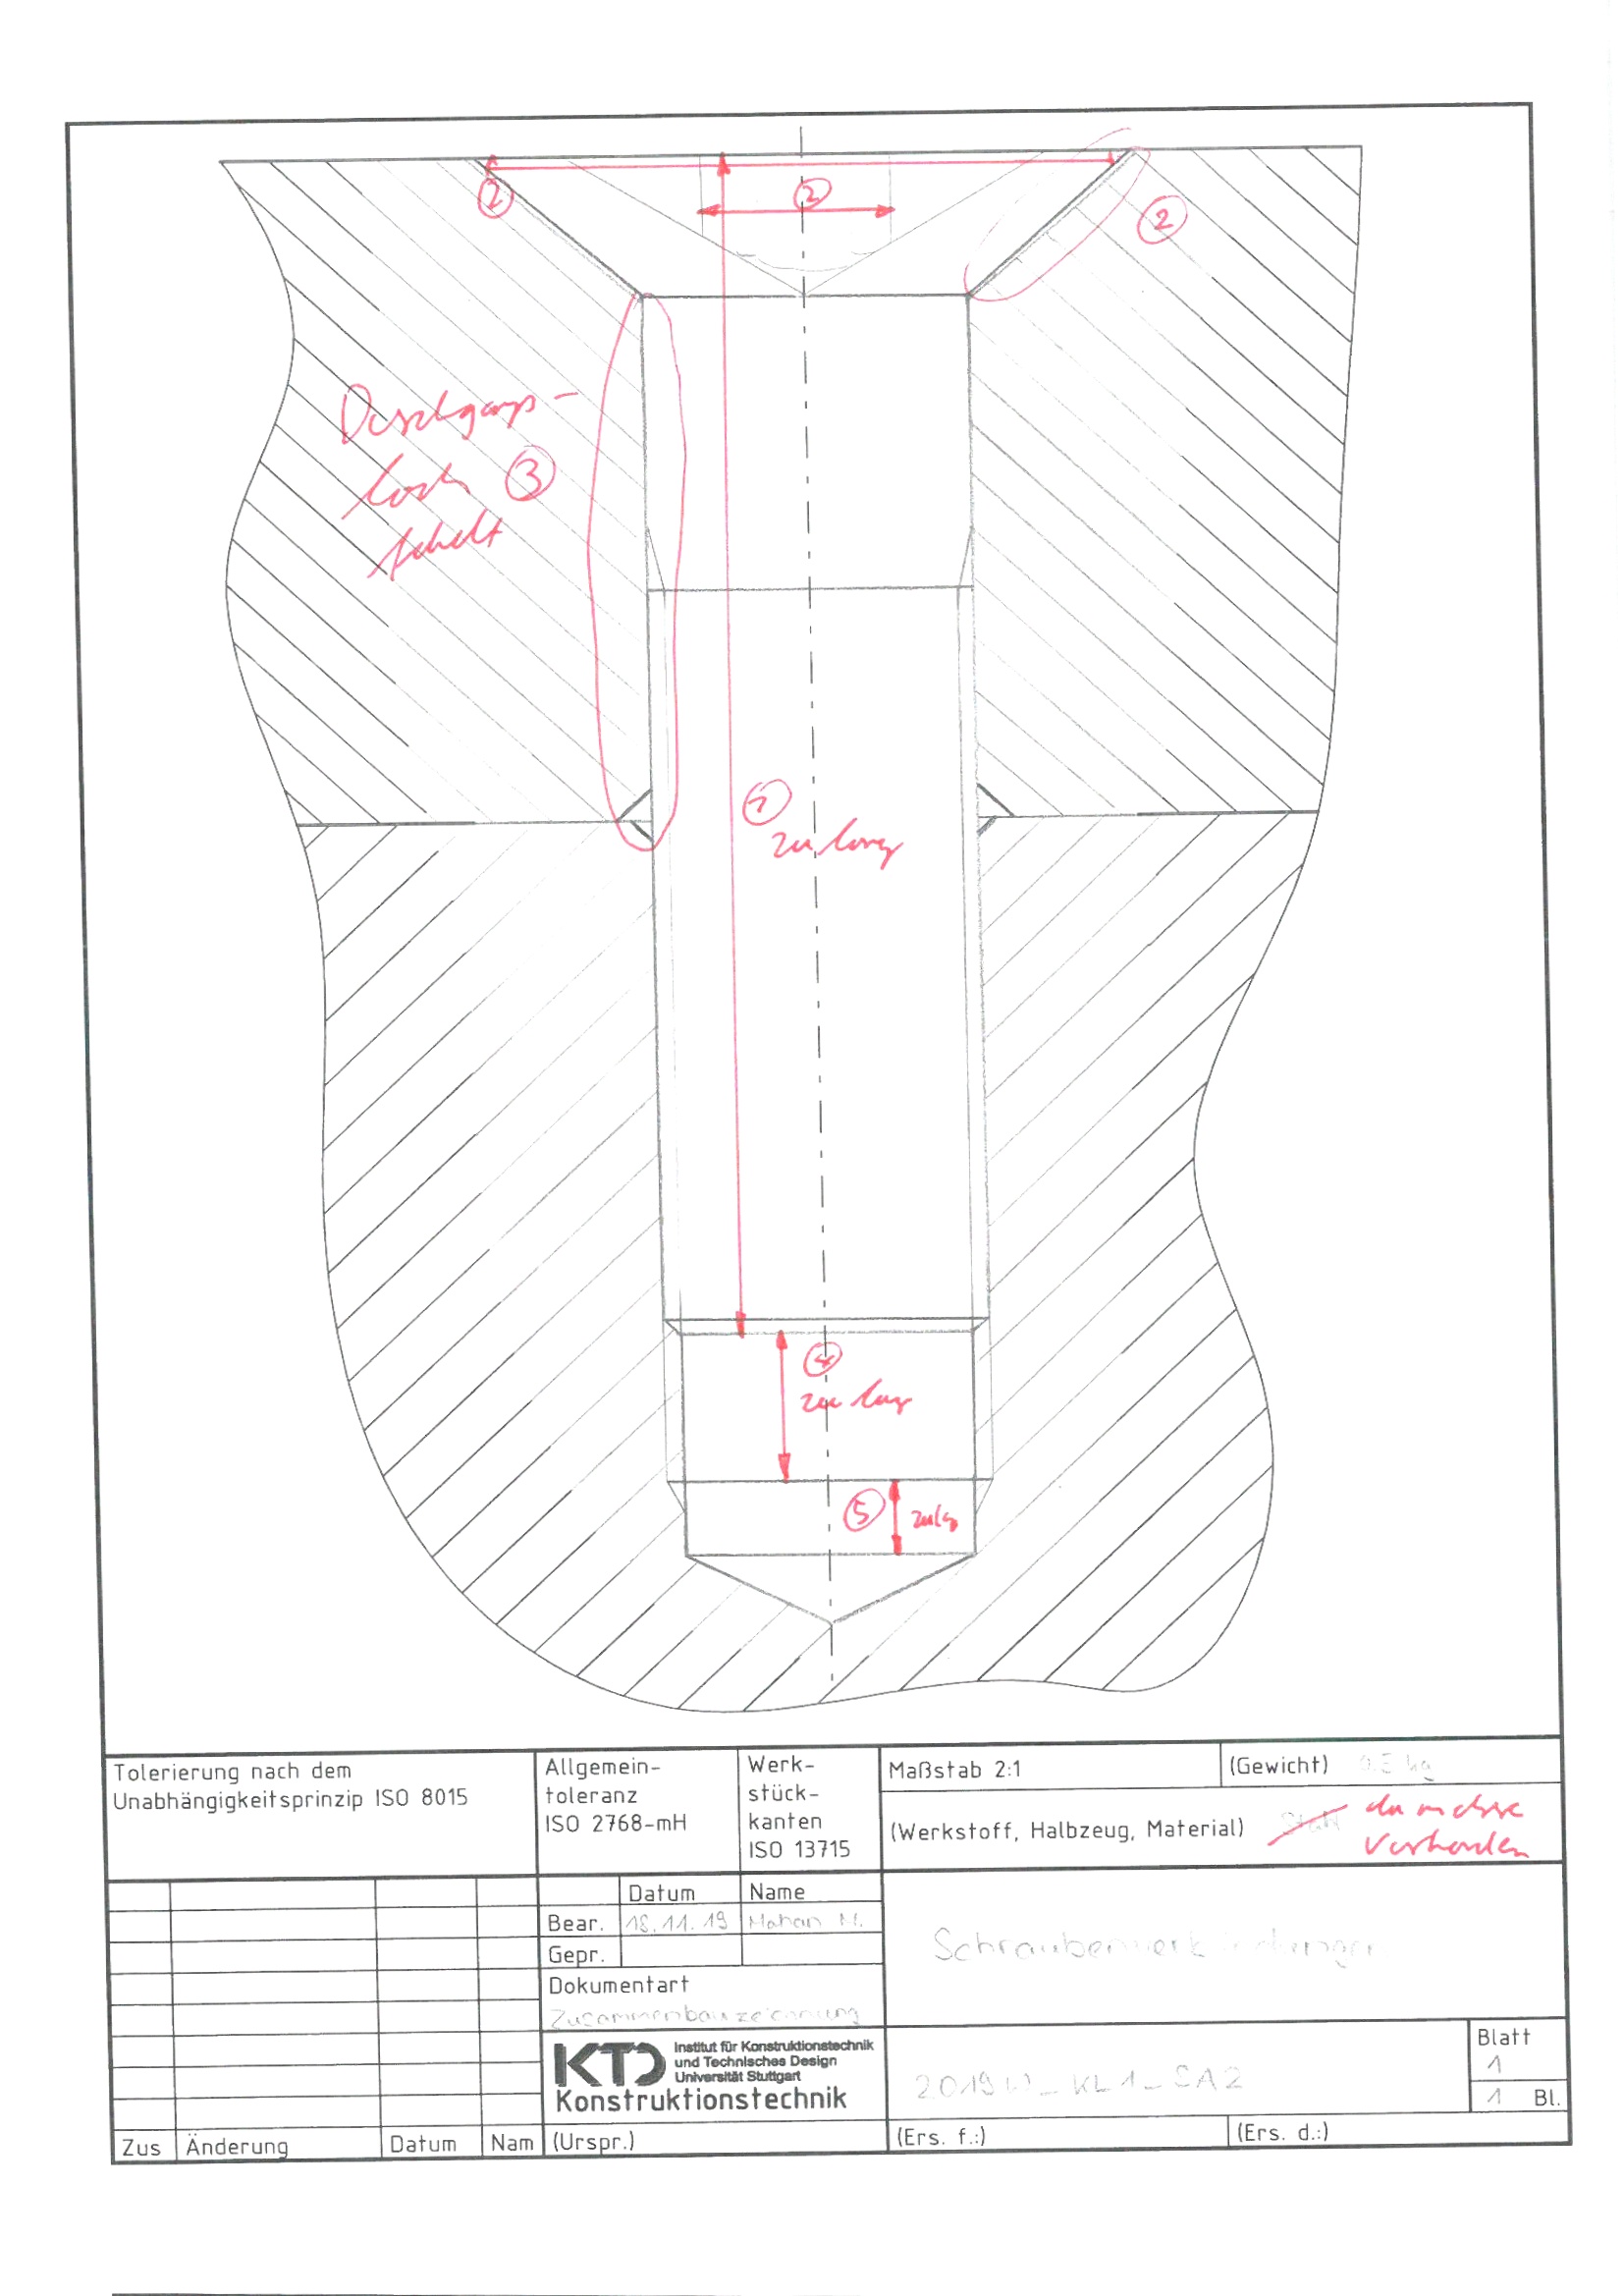 ②
②
②
Durchgangs-
loch ③
fehlt
① zu lang
④
zu lang
⑤ zu lg
Tolerierung nach dem
Unabhängigkeitsprinzip ISO 8015
Allgemein-
toleranz
ISO 2768-mH
Werk-
stück-
kanten
ISO 13715
Maßstab 2:1
(Gewicht) 0.5 kg
(Werkstoff, Halbzeug, Material) Stahl da mehrere
Vorhanden
Datum Name
Bear. 18.11.19 Mahan M.
Gepr.
Dokumentart
Zusammenbauzeichnung
Schraubenverbindungen
KTD Institut für Konstruktionstechnik
und Technisches Design
Universität Stuttgart
Konstruktionstechnik
2019W_KL1_SA2
Blatt
1
1 Bl.
Zus Änderung Datum Nam (Urspr.) (Ers. f.:) (Ers. d.:)